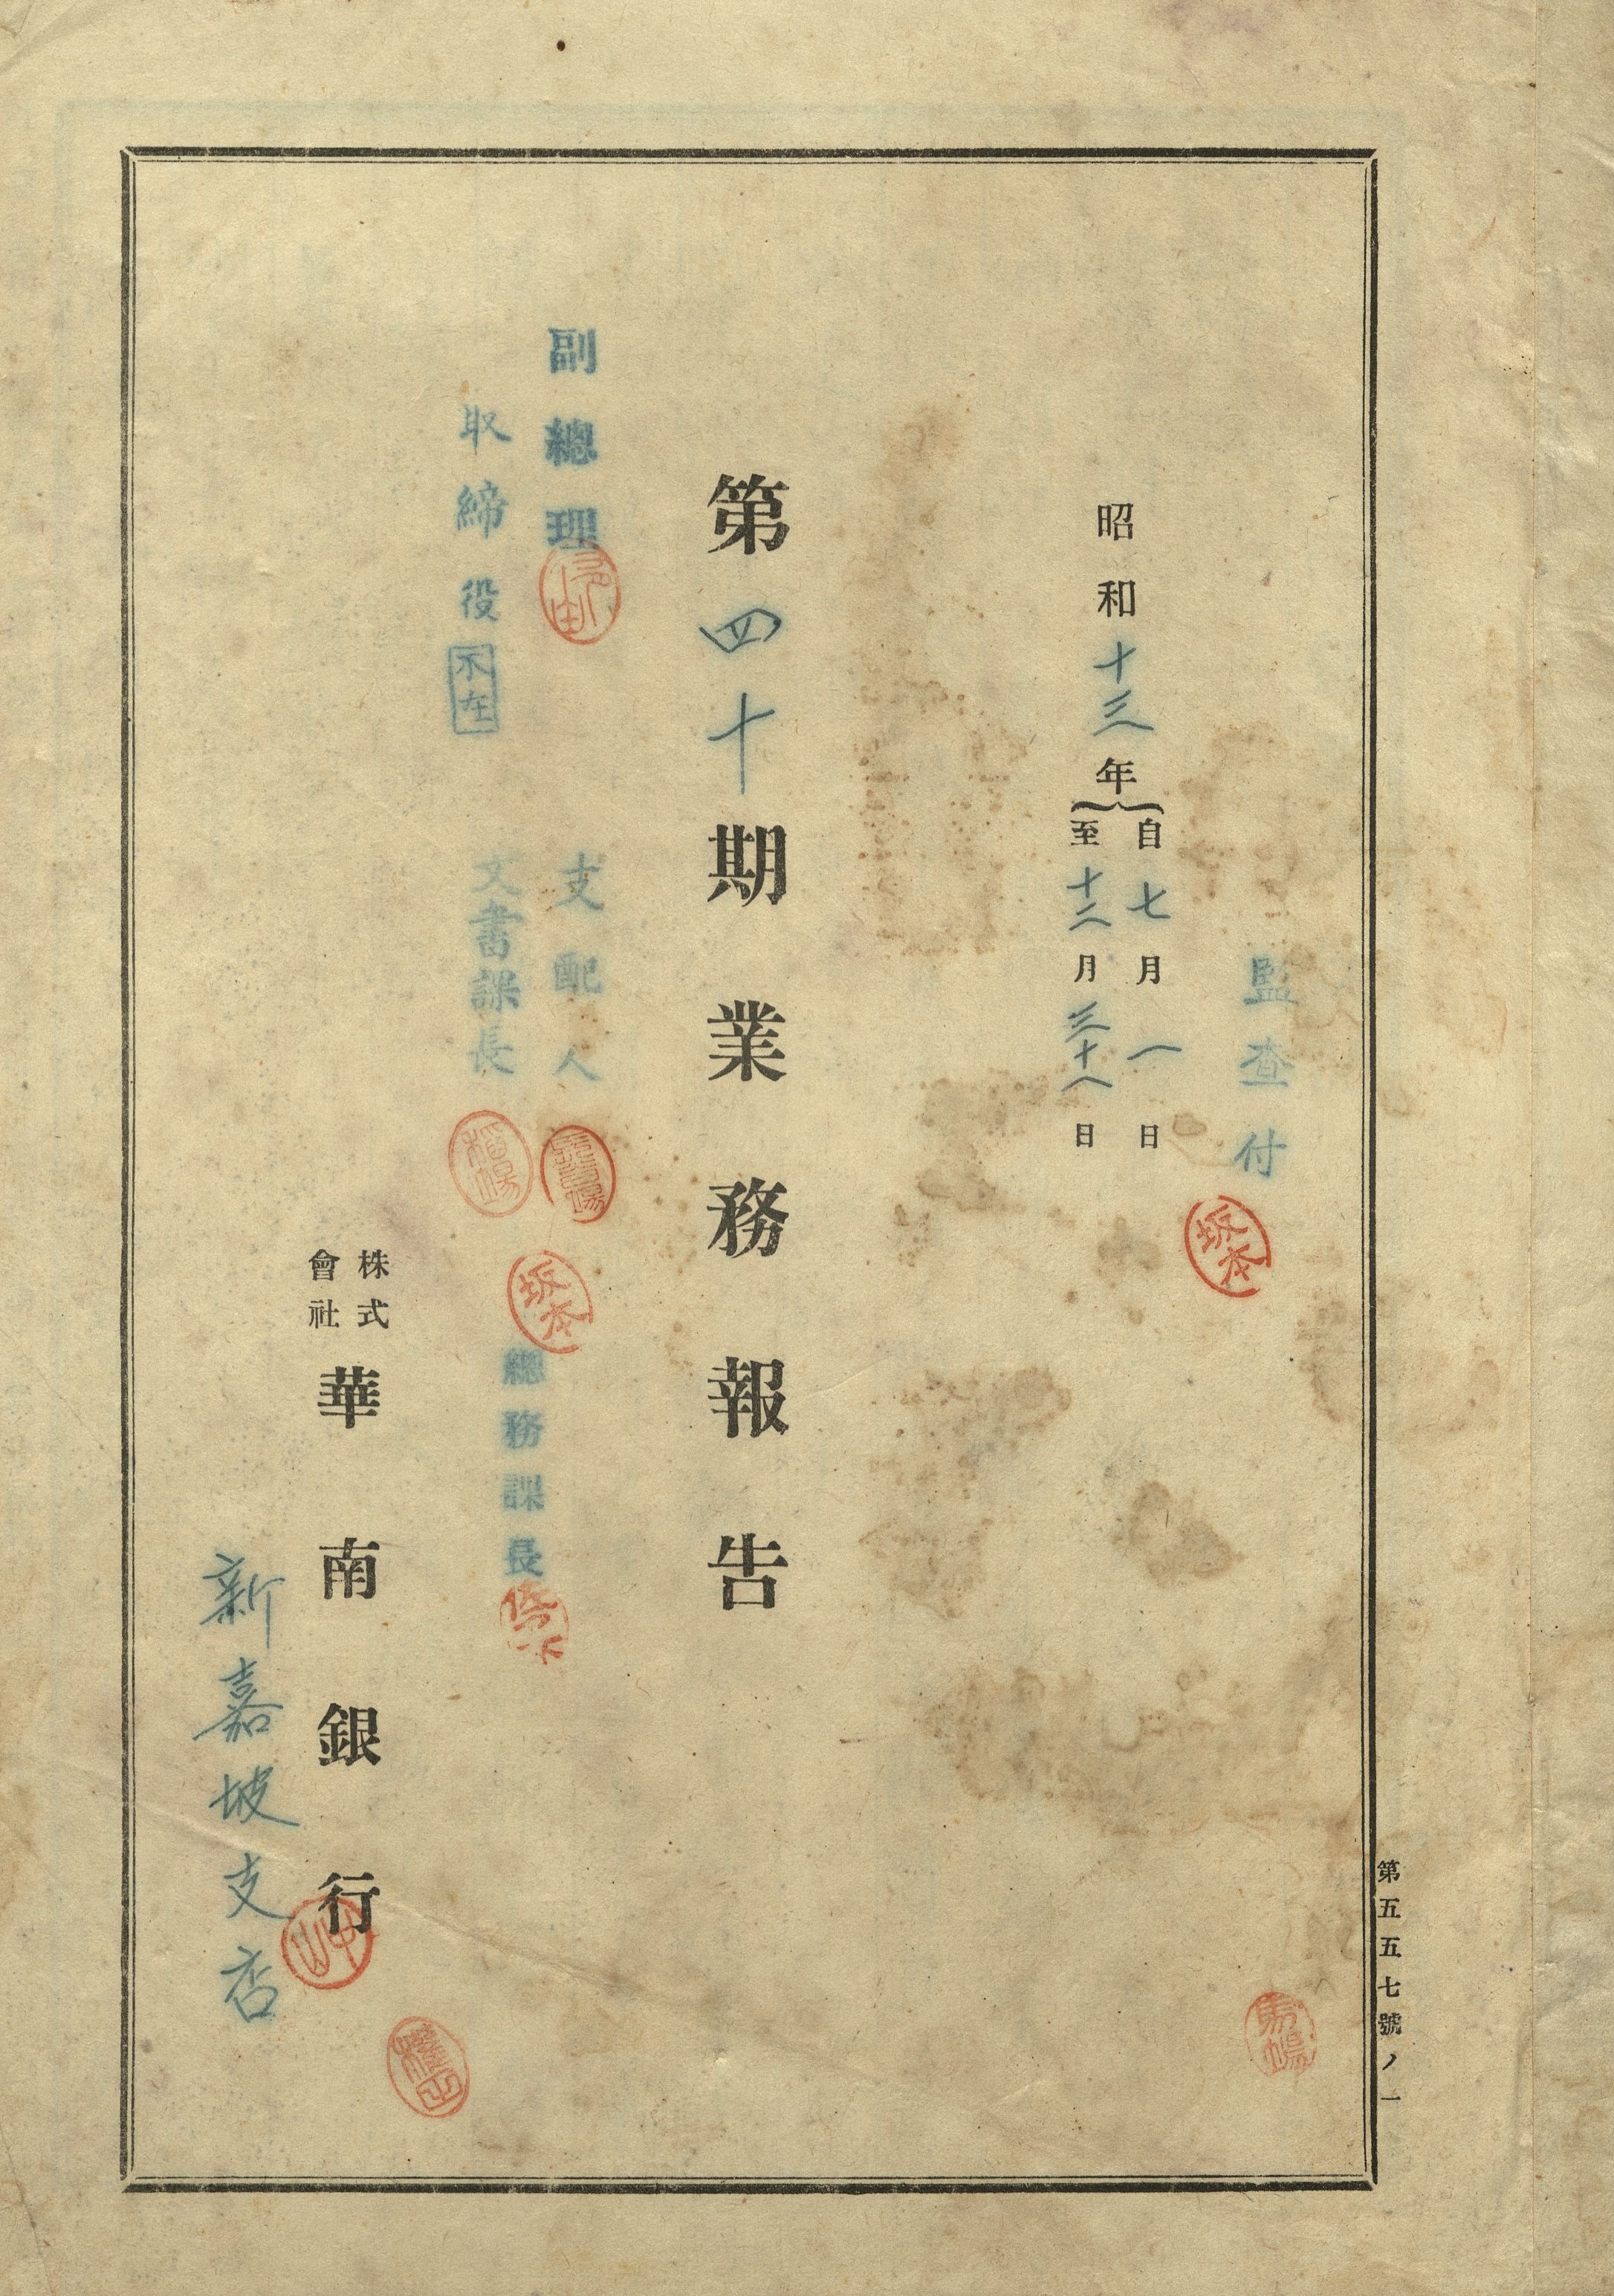 第五五七號ノ一
監査付
坂本
昭和十三年
自七月一日
至十二月三十一日
第四十期業務報告
副總理
支配人
坂本
取締役
不在
文書課長
稻場
總務課長
株式會社
華南銀行
新嘉坡支店